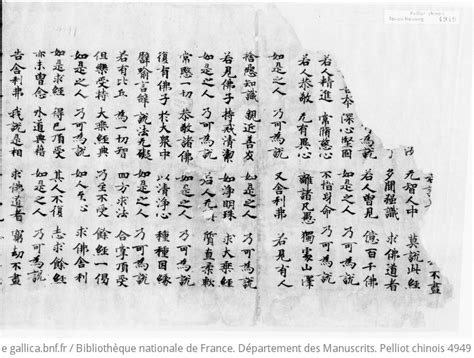 不盡
无智人中 莫說此經
了 多聞強識 求佛道者
為說 若人曾見 億百千佛
本 深心堅固 如是之人 乃可為說
若人精進 常脩慈心 不惜身命 乃可為說
若人恭敬 无有異心 離諸凡愚 獨處山澤
如是之人 乃可為說 又舍利弗 若見有人
捨惡知識 親近善友 如是之人 乃可為說
若見佛子 持戒清潔 如淨明珠 求大乘經
如是之人 乃可為說 若人无瞋 質直柔軟
常愍一切 恭敬諸佛 如是之人 乃可為說
復有佛子 於大眾中 以清淨心 種種因緣
譬喻言辭 說法无礙 如是之人 乃可為說
若有比丘 為一切智 四方求法 合掌頂受
但樂受持 大乘經典 乃至不受 餘經一偈
如是之人 乃可為說 如人至心 求佛舍利
如是求經 得已頂受 其人不復 志求餘經
亦未曾念 外道典籍 如是之人 乃可為說
告舍利弗 我說是相 求佛道者 窮劫不盡
Pelliot chinois
4949
e gallica.bnf.fr / Bibliothèque nationale de France. Département des Manuscrits. Pelliot chinois 4949